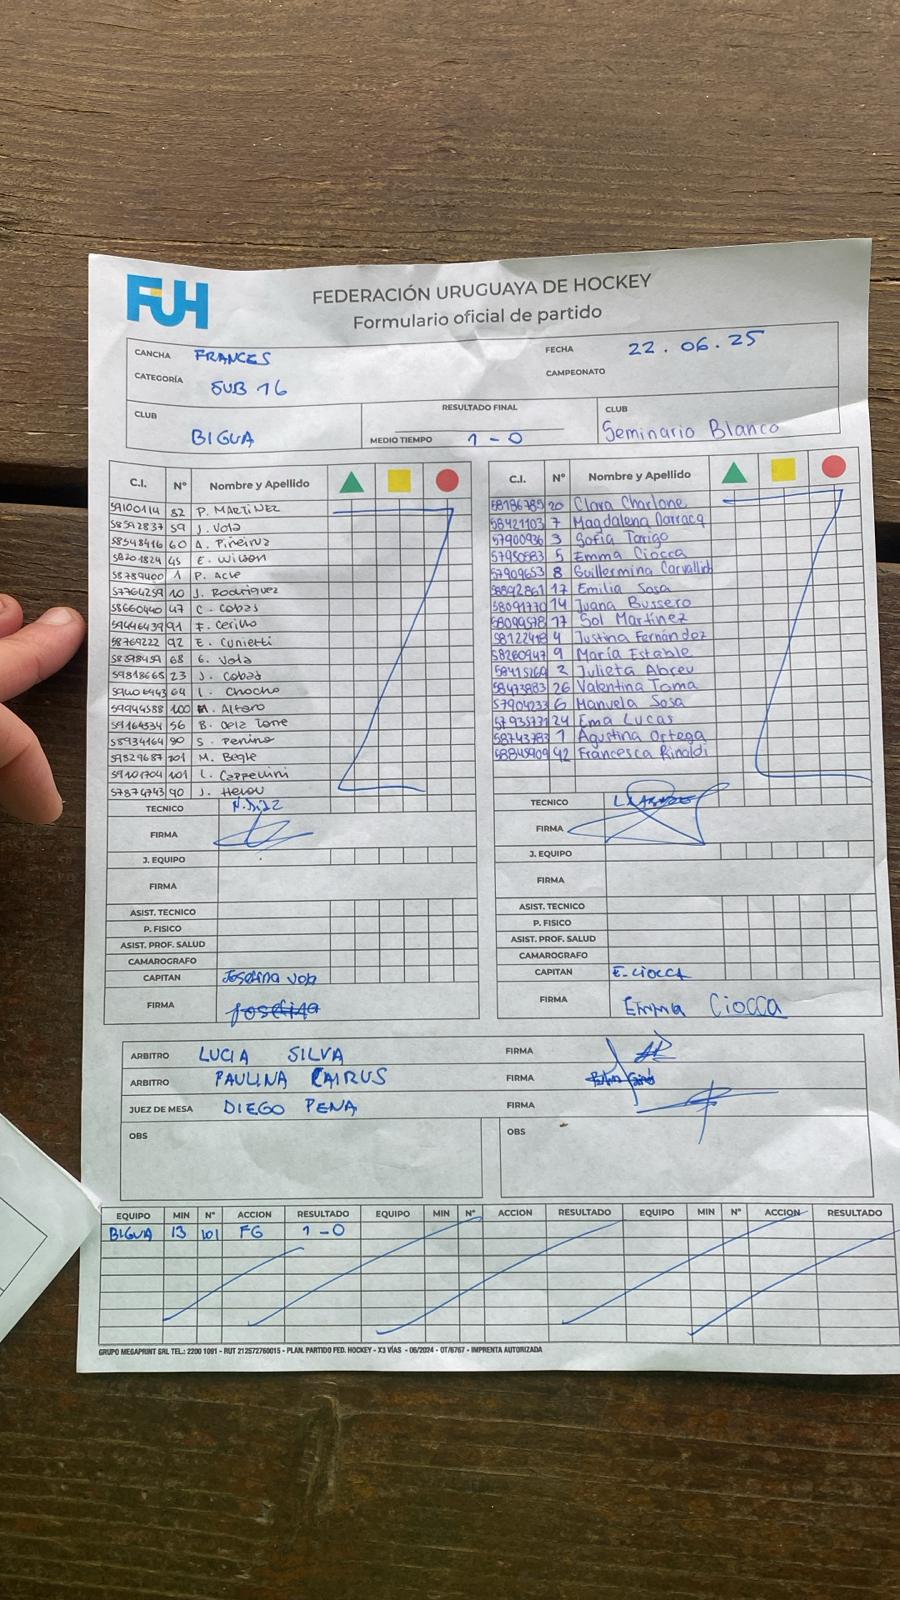 FUH
FEDERACIÓN URUGUAYA DE HOCKEY
Formulario oficial de partido
CANCHA FRANCES
FECHA 22.06.25
CATEGORÍA SUB 16
CAMPEONATO
CLUB BIGUA
RESULTADO FINAL
MEDIO TIEMPO 1-0
CLUB Seminario Blanco
C.I. Nº Nombre y Apellido
59100414 82 P. MARTINEZ
58592837 59 J. Vola
58548416 60 A. Piñeirua
58201824 45 E. Wilson
58789400 1 P. Acle
57764259 10 J. Rodriguez
58660440 47 C. Cobas
91 F. Cerillo
58769222 92 E. Cunietti
68 G. Vola
59818665 23 J. Cobas
64 I. Chocho
59944588 100 M. Alfaro
59164534 56 B. Delz Torre
58934164 90 S. Penino
59529687 201 M. Begle
59101704 101 L. Cappellini
57874743 90 J. Herou
TECNICO
FIRMA
J. EQUIPO
FIRMA
ASIST. TECNICO
P. FISICO
ASIST. PROF. SALUD
CAMAROGRAFO
CAPITAN Josefina Vola
FIRMA Josefina
C.I. Nº Nombre y Apellido
58186785 20 Clara Charlone
58421103 7 Magdalena Darracq
57900936 3 Sofía Tarigo
57950583 5 Emma Ciocca
57909653 8 Guillermina Carvallido
58892861 17 Emilia Sosa
58091770 14 Juana Bussero
58099578 17 Sol Martínez
58122418 4 Justina Fernández
58260947 9 María Estable
58415269 2 Julieta Abreu
58473883 26 Valentina Toma
57904233 6 Manuela Sosa
57935771 24 Ema Lucas
58743783 1 Agustina Ortega
58845909 42 Francesca Rinaldi
TECNICO
FIRMA
J. EQUIPO
FIRMA
ASIST. TECNICO
P. FISICO
ASIST. PROF. SALUD
CAMAROGRAFO
CAPITAN E. CIOCCA
FIRMA Emma Ciocca
ARBITRO LUCIA SILVA FIRMA
ARBITRO PAULINA CAIRUS FIRMA
JUEZ DE MESA DIEGO PENA FIRMA
OBS
OBS
EQUIPO MIN Nº ACCION RESULTADO EQUIPO MIN Nº ACCION RESULTADO EQUIPO MIN Nº ACCION RESULTADO
BIGUA 13 101 FG 1-0
GRUPO MEGAPRINT SRL TEL.: 2200 1091 - RUT 212572760015 - PLAN. PARTIDO FED. HOCKEY - X3 VÍAS - 06/2024 - OT/6767 - IMPRENTA AUTORIZADA